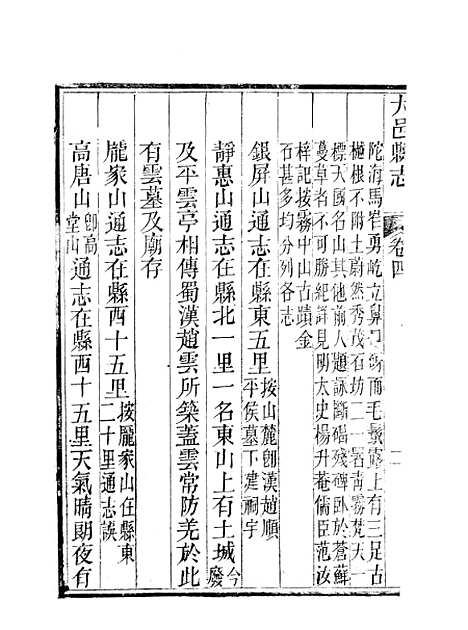 大邑縣志 卷四
陀海馬岩勇屹立鼻口鬚而毛鬢露上有三足古
極根不附土蔚然秀茂石坊二一署青霧梵天一
標天國名山其他前人題詠斷碣殘碑卧於蒼蘚
蔓草者不可勝紀詳見明太史楊升菴儒臣范汝
梓記按霧中山古蹟金
石甚多均分列各志
銀屏山通志在縣東五里按山麓卽漢趙順
平侯墓下建祠宇
靜惠山通志在縣北一里一名東山上有土城今
廢
及平雲亭相傳蜀漢趙雲所築蓋雲常防羌於此
有雲墓及廟存
龐家山通志在縣西十五里按龐家山在縣東
二十里通志誤
高唐山卽高
堂山通志在縣西十五里天氣晴朗夜有